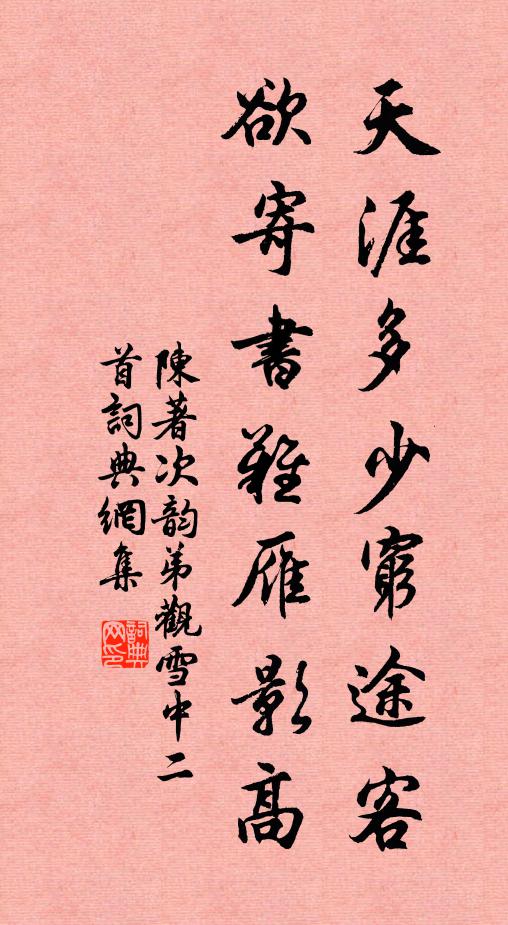 天涯多少窮途客
欲寄書難雁影高
陳著次韵弟觀雪中二
首詞典網集
詞典
网印